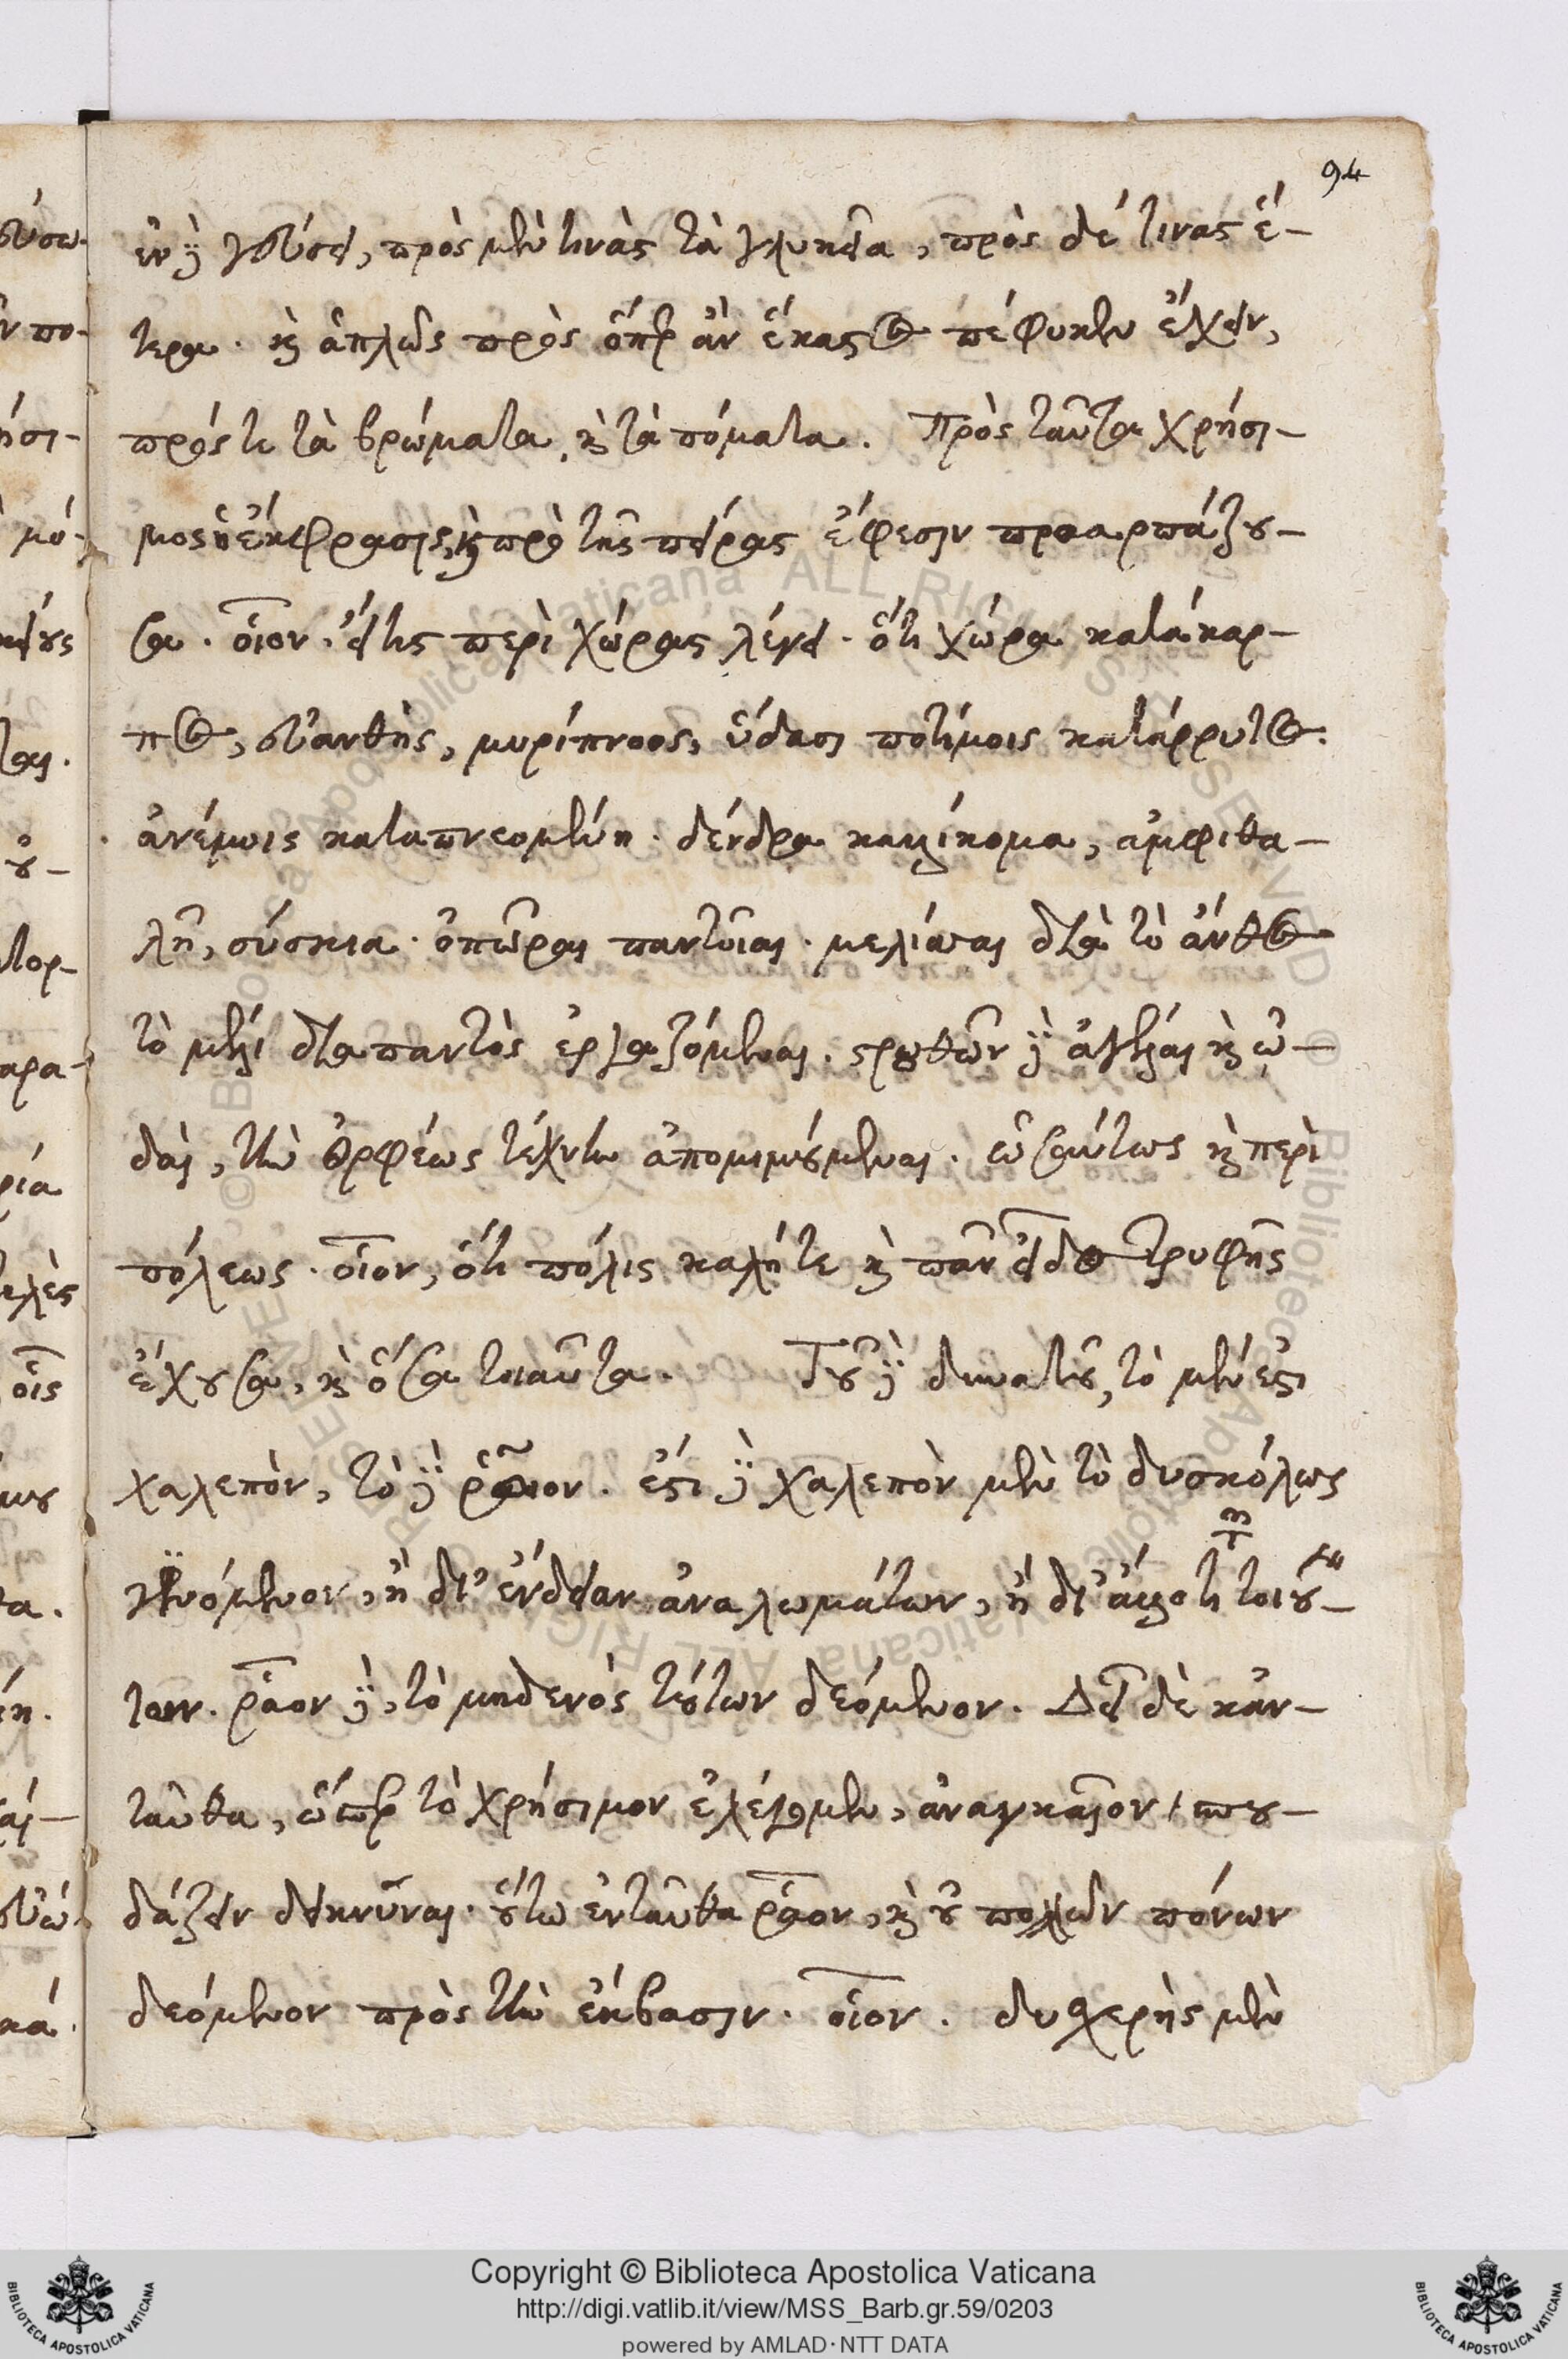 94
ἐν δὲ γεύσει, πρὸς μὲν τινὰς τὰ γλυκεῖα, πρὸς δέ τινας ἕ-
τερα. καὶ ἁπλῶς πρὸς ὅπερ ἂν ἕκαστος πέφυκεν ἔχειν,
πρός τε τὰ βρώματα, καὶ τὰ πόματα. Πρὸς ταῦτα χρήσι-
μος ἡ ἔκφρασις, καὶ πρὸ τῆς πείρας ἔφεσιν προαρπάζου-
σα. οἷον. εἴ τις περὶ χώρας λέγει. ὅτι χώρα κατάκαρ-
πος, εὐανθής, μυρίπνοος, ὕδασι ποτίμοις κατάρρυτος.
ἀνέμοις καταπνεομένη. δένδρα καλλίκομα, ἀμφιθα-
λῆ, σύσκια. ὀπῶραι παντοῖαι. μέλισσαι διὰ τὸ ἄνθος
τὸ μέλι διαπαντὸς ἐργαζόμεναι. στρουθῶν δὲ ἀγέλαι καὶ ᾠ-
δαὶ, τὴν ὀρφέως τέχνην ἀπομιμούμεναι. ὡσαύτως καὶ περὶ
πόλεως. οἷον, ὅτι πόλις καλή τε καὶ πᾶν εἶδος τρυφῆς
ἔχουσα, καὶ ὅσα τοιαῦτα. Τοῦ δὲ δυνατοῦ, τὸ μέν ἐστι
χαλεπὸν, τὸ δὲ ῥᾷον. ἔστι δὲ χαλεπὸν μὲν τὸ δυσκόλως
γενόμενον, ἢ δι' ἔνδειαν ἀναλωμάτων, ἢ δι' ἄλλο τι τοιοῦ-
τον. ῥᾷον δὲ, τὸ μηδενὸς τούτων δεόμενον. Δεῖ δὲ κἀν-
ταῦθα, ὥσπερ τὸ χρήσιμον ἐλέγομεν, ἀναγκαῖον σπου-
δάζειν δεικνῦναι. οὕτω ἐνταῦθα ῥᾷον, καὶ οὐ πολλῶν πόνων
δεόμενον πρὸς τὴν ἔκβασιν. οἷον. δυσχερὴς μὲν
Copyright © Biblioteca Apostolica Vaticana
http://digi.vatlib.it/view/MSS_Barb.gr.59/0203
powered by AMLAD · NTT DATA